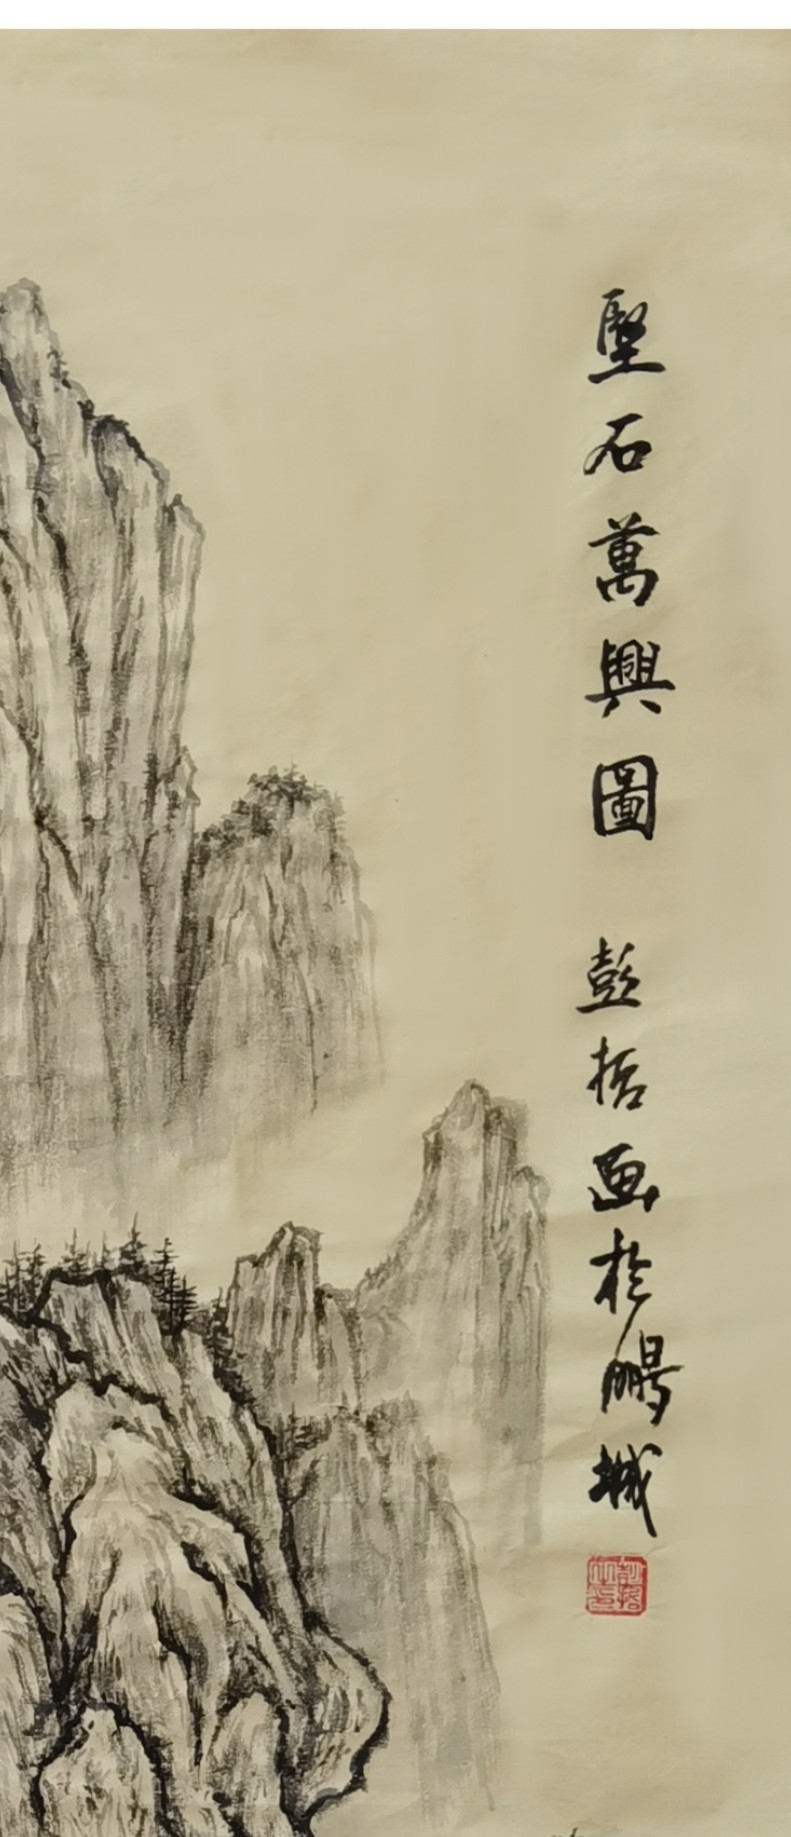 堅石萬興圖 彭哲画於鵬城